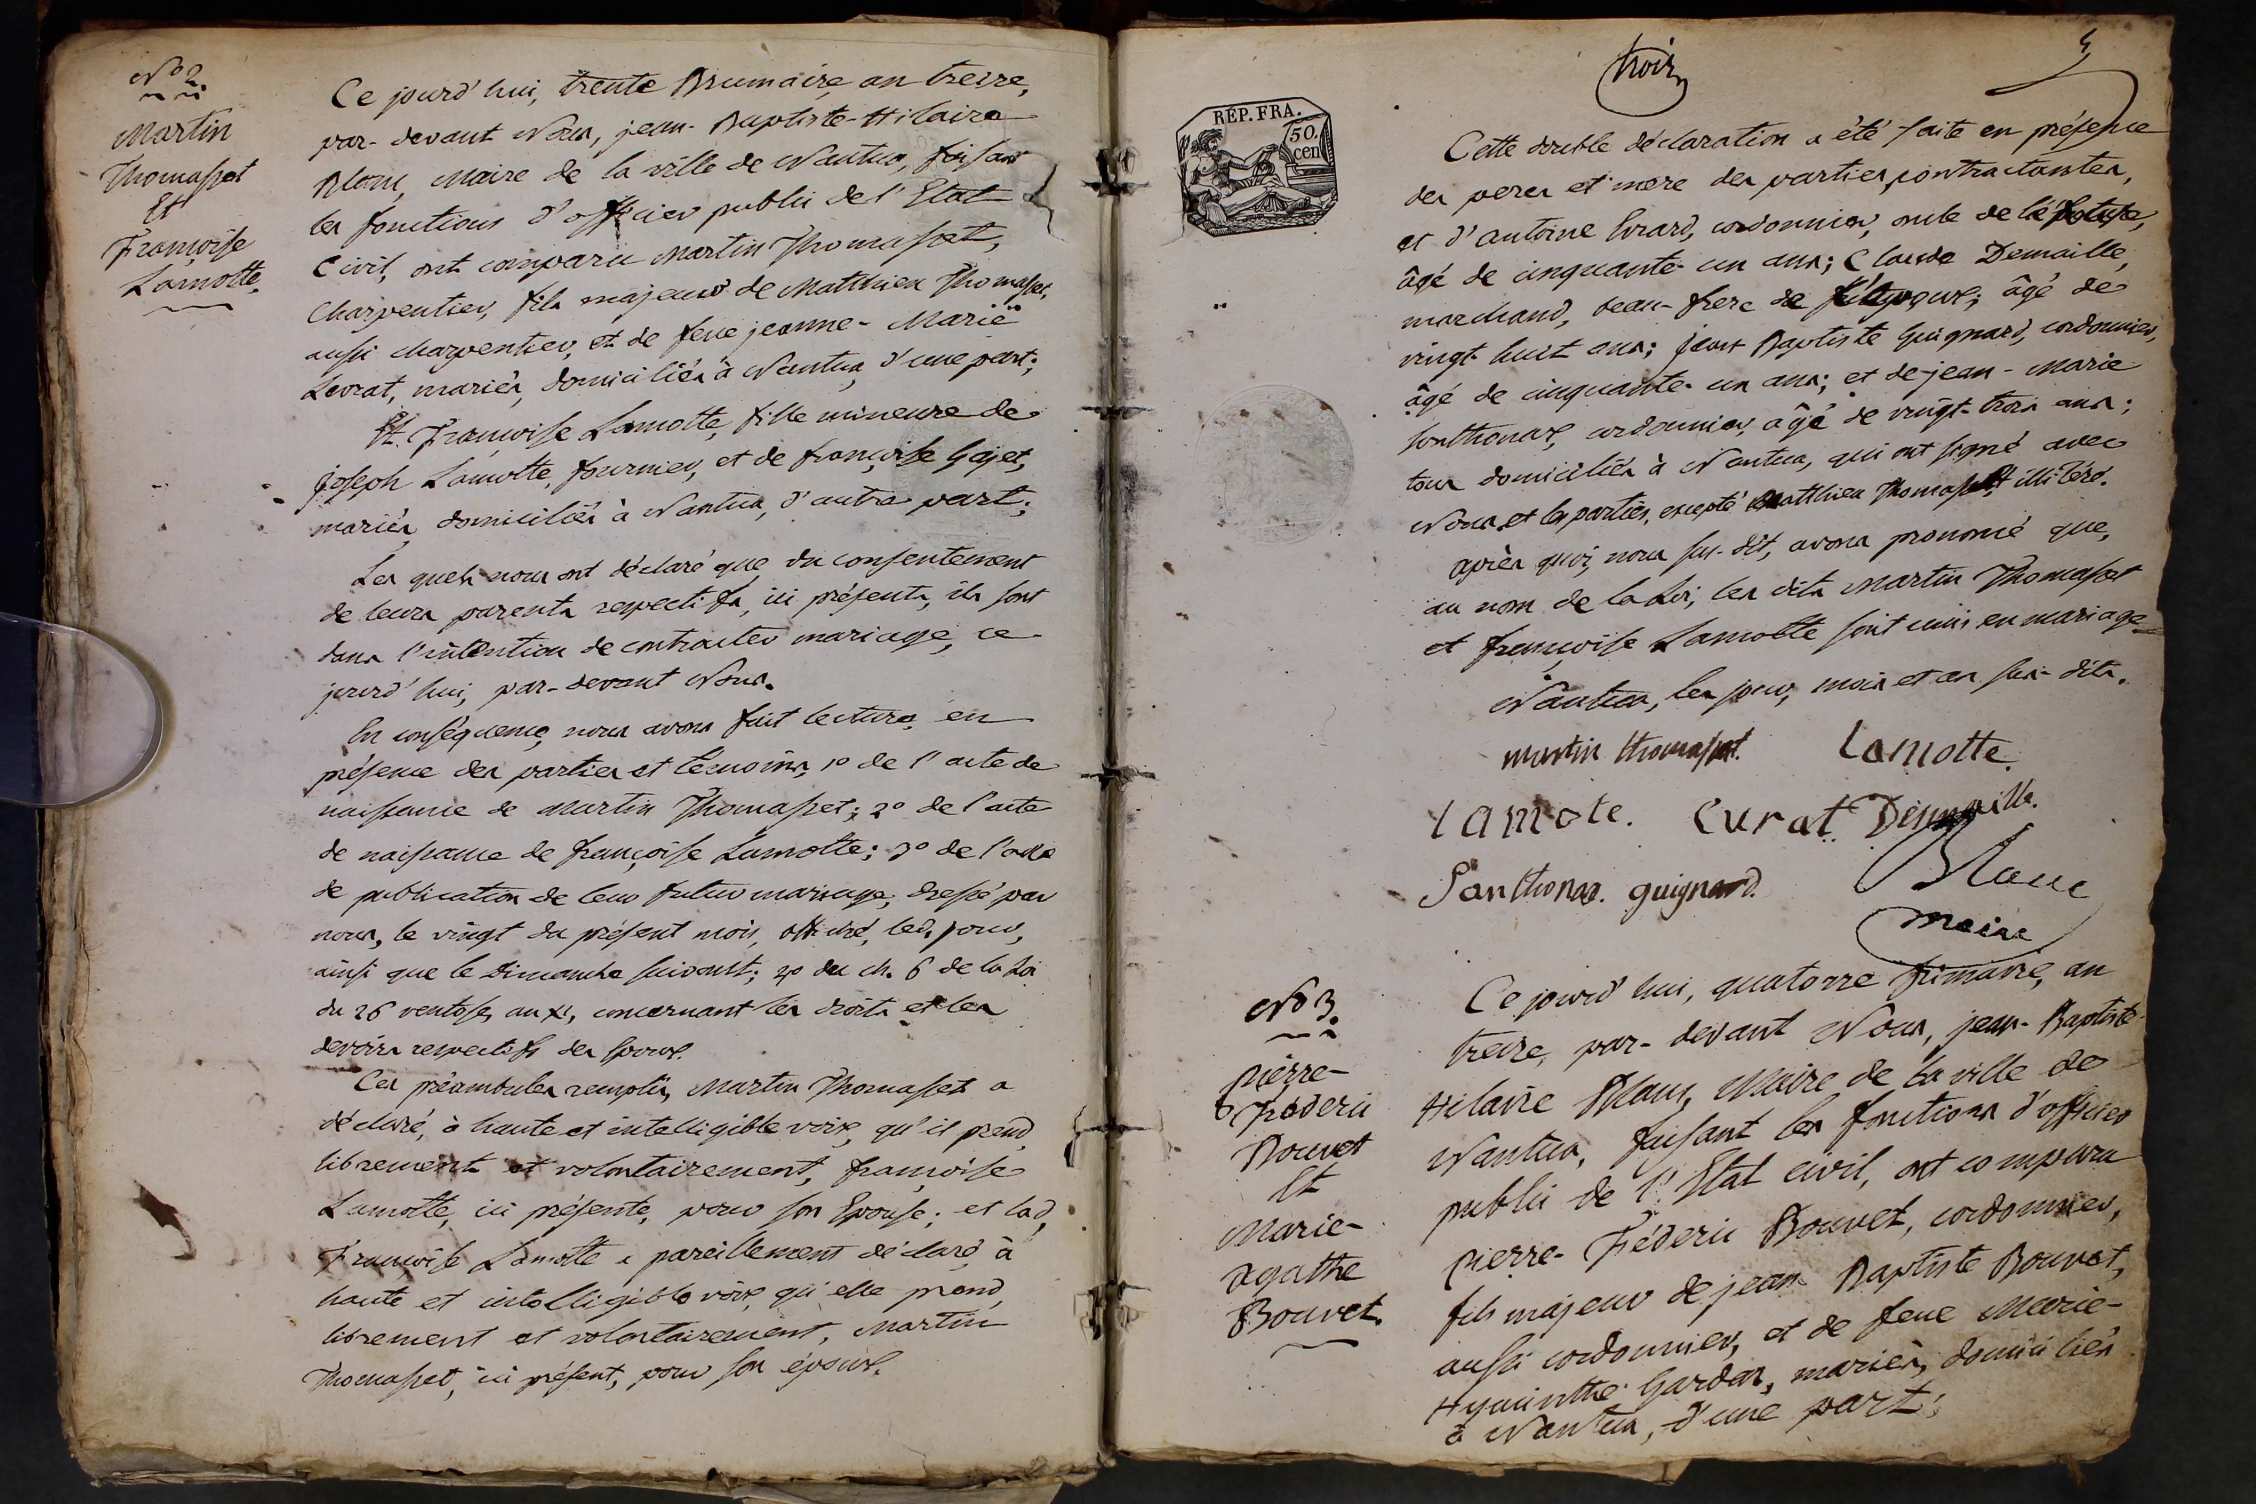 No 2
Martin
Thomasset
Et
Françoise
Lamotte.
Ce jourd'hui, trente Brumaire an treize,
par-devant Nous, jean-Baptiste-Hilaire
Blanc, Maire de la ville de Nantua, faisant
les fonctions d'officier public de l'Etat
Civil, ont comparu Martin Thomasset,
Charpentier, fils majeur de Matthieu Thomasset,
aussi charpentier, et de feue jeanne-Marie
Levrat, mariés, domiciliés à Nantua, d'une part;
Et Françoise Lamotte, fille mineure de
joseph Lamotte, fournier, et de françoise Gojet,
mariés, domiciliés à Nantua, d'autre part;
Les quels nous ont déclaré que du consentement
de leurs parents respectifs, ici présents, ils sont
dans l'intention de contracter mariage, ce
jourd'hui, par-devant Nous.
En conséquence, nous avons fait lecture, en
présence des parties et témoins, 1o de l'acte de
naissance de Martin Thomasset; 2o de l'acte
de naissance de françoise Lamotte; 3o de l'acte
de publication de leur futur mariage, dressé par
nous, le vingt du présent mois, affiché, led. jour,
ainsi que le Dimanche suivant; 4o du ch. 6 de la Loi
du 26 ventose, an XI, concernant les droits et les
devoirs respectifs des époux.
Ces préambules remplis, Martin Thomasset a
déclaré, à haute et intelligible voix, qu'il prend,
librement et volontairement, françoise
Lamotte, ici présente, pour son Epouse; et lad.
Françoise Lamotte a pareillement déclaré, à
haute et intelligible voix, qu'elle prend,
librement et volontairement, Martin
Thomasset, ici présent, pour son époux.
trois
RÉP. FRA.
50.
cen
Cette double déclaration a été faite en présence
des peres et mere des parties contractantes,
et d'antoine cordonnier, oncle de l'épouse,
âgé de cinquante-un ans; Claude Demaille,
marchand, beau-frere de l'époux; âgé de
vingt-huit ans; jean Baptiste Guignard, cordonnier,
âgé de cinquante-un ans; et de jean-Marie
Sonthonax, cordonnier, âgé de vingt-trois ans;
tous domiciliés à Nantua, qui ont signé avec
Nous et les parties, excepté Matthieu Thomasset, illitéré.
après quoi, nous sus-dit, avons prononcé que,
au nom de la Loi, les dits Martin Thomasset
et françoise Lamotte sont unis en mariage.
Nantua, les jour, mois et an sus-dits.
martin thomasset. Lamotte.
lamote. Curat. Demaille.
Santhonax. guignard. Blanc
maire
No 3.
pierre-
Fréderic
Bouvet
Et
Marie-
agathe
Bouvet.
Ce jourd'hui, quatorze frimaire, an
treize, par-devant Nous, jean-Baptiste-
Hilaire Blanc, Maire de la ville de
Nantua, faisant les fonctions d'officier
public de l'Etat civil, ont comparu
pierre-Fréderic Bouvet, cordonnier,
fils majeur de jean-Baptiste Bouvet,
aussi cordonnier, et de feue Marie-
Hyacinthe Gardas, mariés, domiciliés
à Nantua, d'une part;